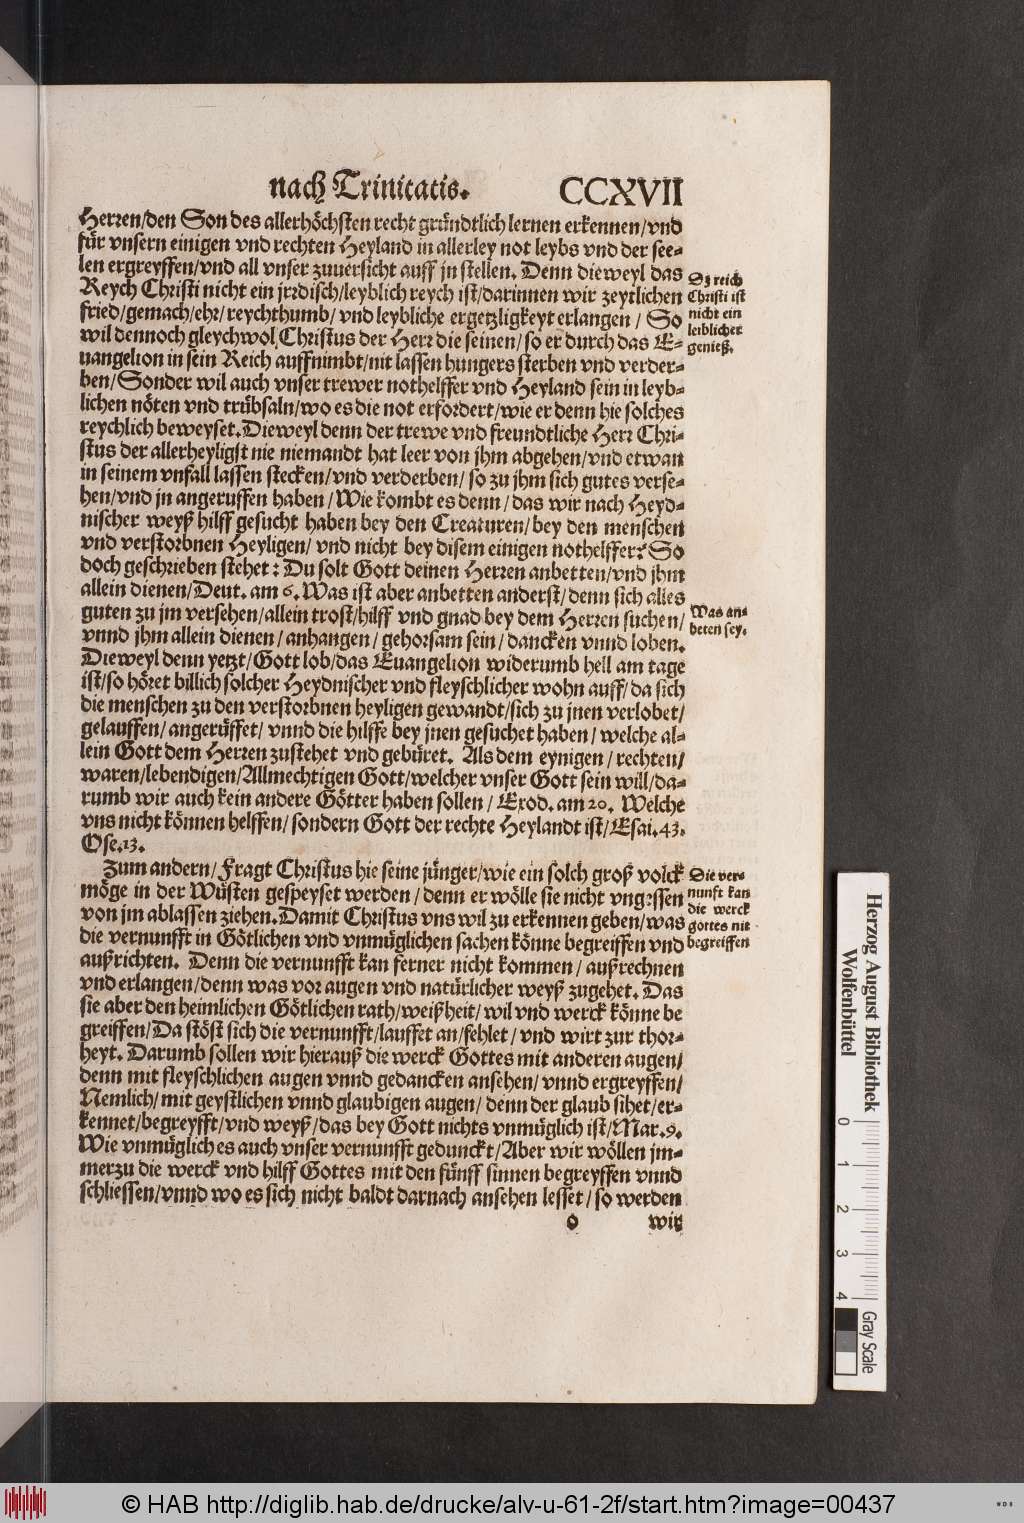 nach Trinitatis. CCXVII
Herren/den Son des allerhöchsten recht gründtlich lernen erkennen/vnd
für vnsern einigen vnd rechten Heyland in allerley not leybs vnd der see-
len ergreyffen/vnd all vnser zuuersicht auff jn stellen. Denn dieweyl das
Reych Christi nicht ein jrrdisch/leyblich reych ist/darinnen wir zeytlichen
fried/gemach/ehr/reychthumb/vnd leybliche ergetzligkeyt erlangen/ So
wil dennoch gleychwol Christus der Herr die seinen/so er durch das E-
uangelion in sein Reich auffnimbt/nit lassen hungers sterben vnd verder-
ben/Sonder wil auch vnser trewer nothelffer vnd Heyland sein in leyb-
lichen nöten vnd trübsaln/wo es die not erfordert/wie er denn hie solches
reychlich beweyset. Dieweyl denn der trewe vnd freundtliche Herr Chri-
stus der allerheyligst nie niemandt hat leer von jhm abgehen/vnd etwan
in seinem vnfall lassen stecken/vnd verderben/ so zu jhm sich gutes verse-
hen/vnd jn angeruffen haben/Wie kombt es denn/das wir nach Heyd-
nischer weyß hilff gesucht haben bey den Creaturen/bey den menschen
vnd verstorbnen Heyligen/ vnd nicht bey disem einigen nothelffer? So
doch geschrieben stehet: Du solt Gott deinen Herren anbetten/vnd jhm
allein dienen/Deut. am 6. Was ist aber anbetten anderst/denn sich alles
guten zu jm versehen/allein trost/hilff vnd gnad bey dem Herren suchen/
vnnd jhm allein dienen/anhangen/gehorsam sein/dancken vnnd loben.
Dieweyl denn yetzt/Gott lob/das Euangelion widerumb hell am tage
ist/so höret billich solcher Heydnischer vnd fleyschlicher wohn auff/da sich
die menschen zu den verstorbnen heyligen gewandt/sich zu jnen verlobet/
gelauffen/angerüffet/vnnd die hilffe bey jnen gesuchet haben/welche al-
lein Gott dem Herren zustehet vnd gebüret. Als dem eynigen/rechten/
waren/lebendigen/Allmechtigen Gott/welcher vnser Gott sein will/da-
rumb wir auch kein andere Götter haben sollen/Exod. am 20. Welche
vns nicht können helffen/sondern Gott der rechte Heylandt ist/Esai. 43.
Ose. 13.
Zum andern/Fragt Christus hie seine jünger/wie ein solch groß volck
möge in der Wüsten gespeyset werden/denn er wölle sie nicht vngessen
von jm ablassen ziehen. Damit Christus vns wil zu erkennen geben/was
die vernunfft in Götlichen vnd vnmüglichen sachen könne begreiffen vnd
außrichten. Denn die vernunfft kan ferner nicht kommen/außrechnen
vnd erlangen/denn was vor augen vnd natürlicher weyß zugehet. Das
sie aber den heimlichen Götlichen rath/weißheit/wil vnd werck könne be
greiffen/Da stöst sich die vernunfft/lauffet an/fehlet/vnd wirt zur thor-
heyt. Darumb sollen wir hierauß die werck Gottes mit anderen augen/
denn mit fleyschlichen augen vnnd gedancken ansehen/vnnd ergreyffen/
Nemlich/mit geystlichen vnnd glaubigen augen/denn der glaub sihet/er-
kennet/begreyfft/vnd weyß/das bey Gott nichts vnmüglich ist/Mar. 9.
Wie vnmüglich es auch vnser vernunfft gedunckt/Aber wir wöllen jm-
merzu die werck vnd hilff Gottes mit den fünff sinnen begreyffen vnnd
schliessen/vnnd wo es sich nicht baldt darnach ansehen lesset/so werden
o wir
Dz reich
Christi ist
nicht ein
leiblicher
genieß.
Was an-
beten sey.
Die ver-
nunft kan
die werck
gottes nit
begreiffen
Herzog August Bibliothek
Wolfenbüttel
0 1 2 3 4
Gray Scale
© HAB http://diglib.hab.de/drucke/alv-u-61-2f/start.htm?image=00437